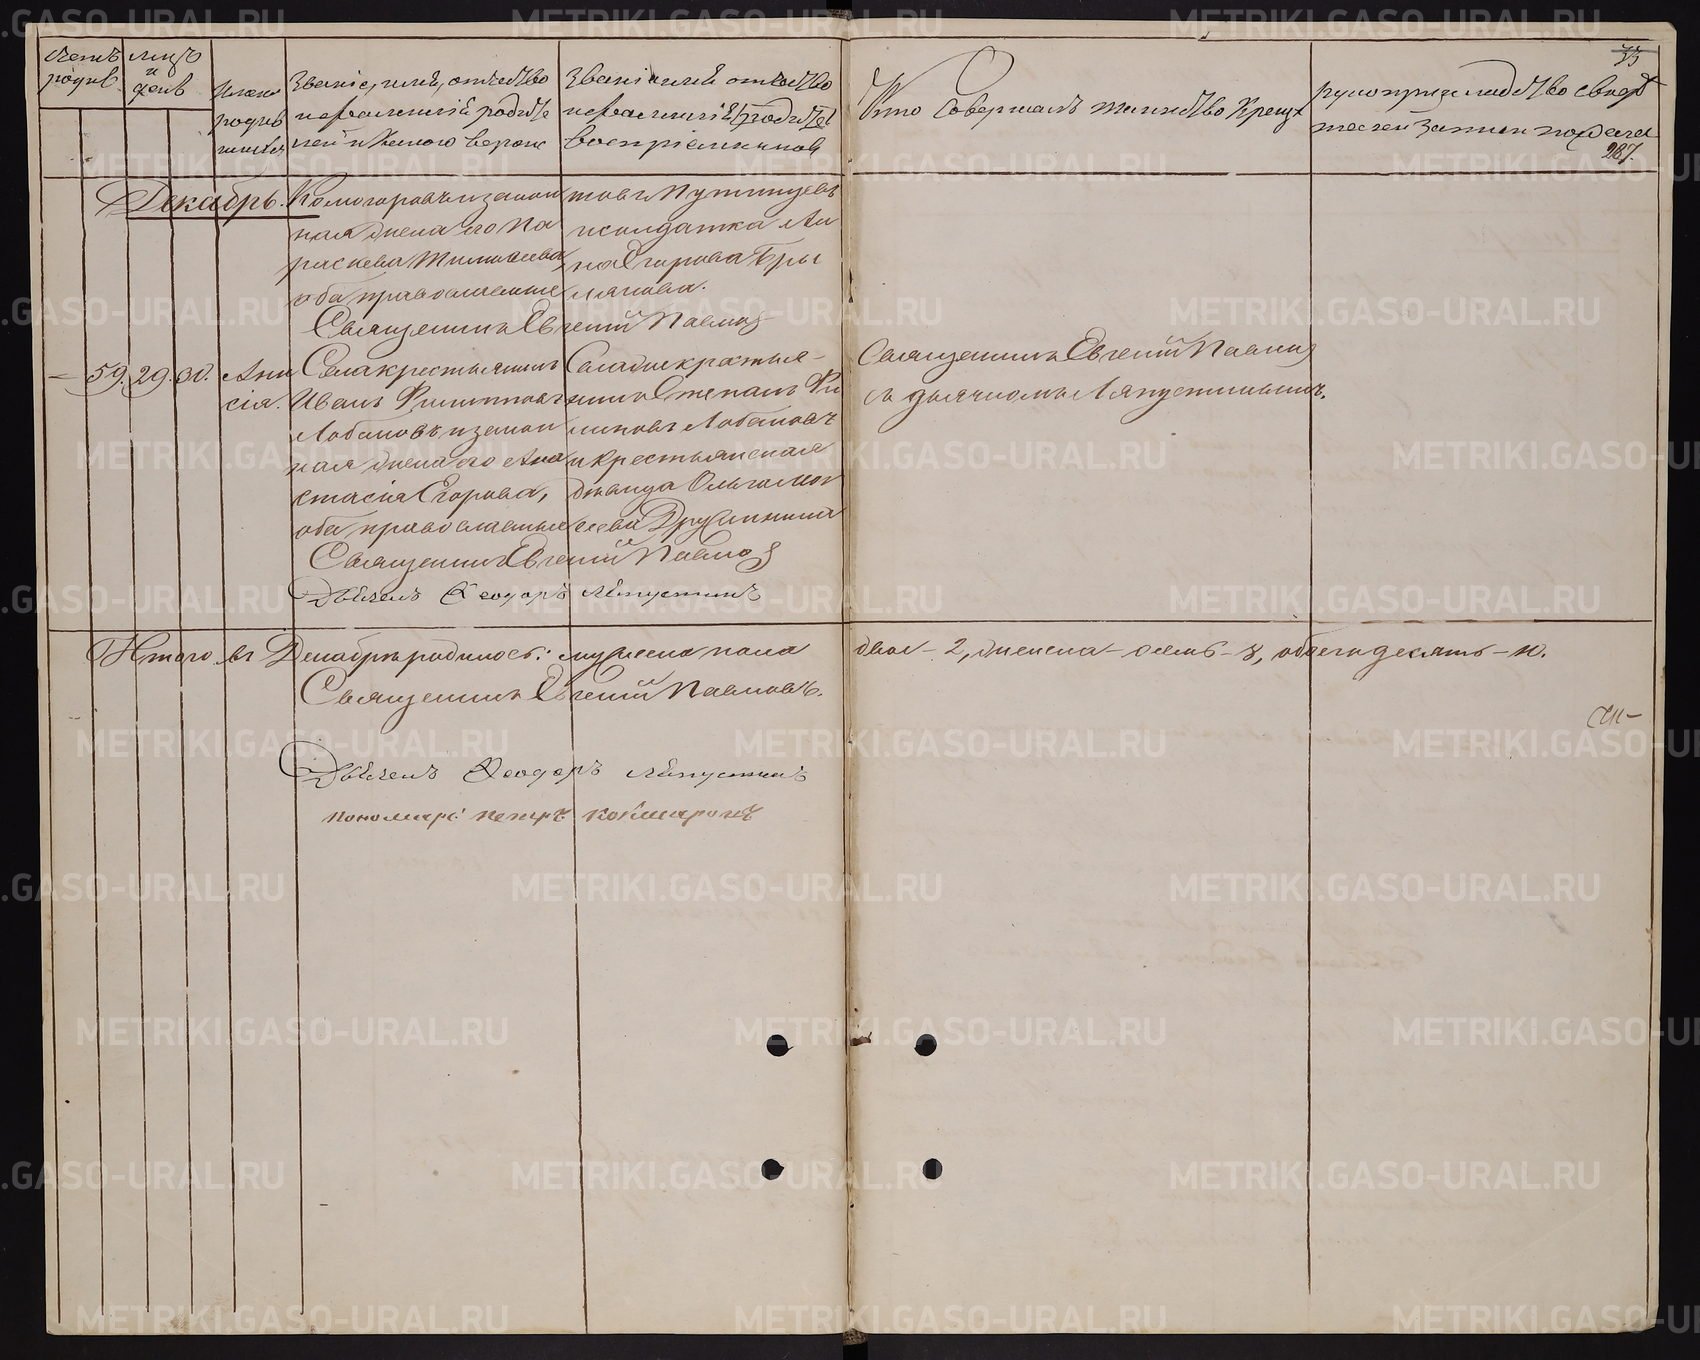 Счетъ родив.
мцъ и день
Имена родив шихся
Званіе, имя, отчество
и фамилія родите
лей и какого веро
Званіе имя отчество
и фамилія
воспріемниковъ
Кто совершалъ таинство Крещ
рукоприкладство свидѣ
телей записи по жела
33
287.
Декабрь.
Комогоровъ и закон
ная жена его Па
раскева Тимофеева,
оба православные
товъ Путинцевъ
и солдатка Ан
на Егорова Бры
лякова.
Священникъ Евгеній Павлов
59. 29. 30. Ани
сія.
Села крестьянинъ
Иванъ Филипповъ
Лобановъ и закон
ная жена его Ана
стасія Егорова,
оба православные
Села же крестья-
нинъ Степанъ Фи
липовъ Лобановъ
и крестьянская
дѣвица Ольга Мои
сеева Дружинина
Священникъ Евгеній Павлов
съ дьячкомъ Ляпустинымъ.
Священникъ Евгеній Павлов
Дьячекъ Ѳеодоръ Ляпустинъ
Итого въ Декабрѣ родилось: мужеска пола двое - 2, женска - осемь - 8, обоего десять - 10.
Священникъ Евгеній Павловъ.
Дьячекъ Ѳеодоръ Ляпустинъ
пономарь Петръ Кокшаровъ
METRIKI.GASO-URAL.RU